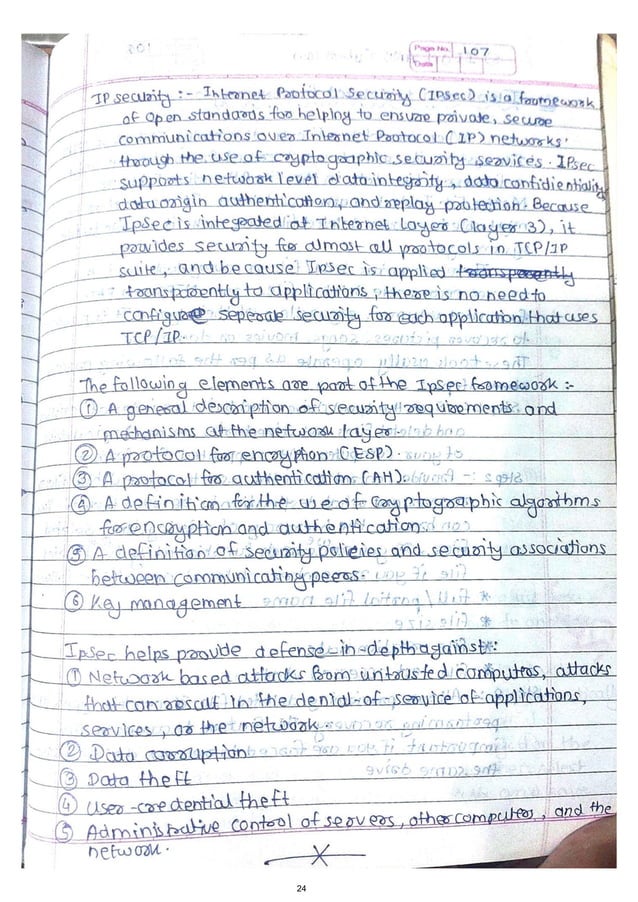 Page No. 107
Date
IP security :- Internet Protocol Security (IPsec) is a framework
of open standards for helping to ensure private, secure
communications over Internet Protocol (IP) networks.
through the use of cryptographic security services. IPsec
supports network level data integrity, data confidientiality,
data origin authentication, and replay protection. Because
Ipsec is integrated at Internet layer (layer 3), it
provides security for almost all protocols in TCP/IP
suite, and because Ipsec is applied transparently
transparently to applications, there is no need to
configure seperate security for each application that uses
TCP/IP.
The following elements are part of the Ipsec framework :-
① A general description of security requirements and
mechanisms at the network layer
② A protocol for encryption (ESP).
③ A protocol for authentication (AH).
④ A definition for the use of cryptographic algorithms
for encryption and authentication
⑤ A definition of security policies and security associations
between communicating peers.
⑥ Key management
Ipsec helps provide defense-in-depth against :
① Network based attacks from untrusted computers, attacks
that can result in the denial-of-service of applications,
services, or the network
② Data corruption
③ Data theft
④ User-credential theft
⑤ Administrative control of servers, other computers, and the
network.
24